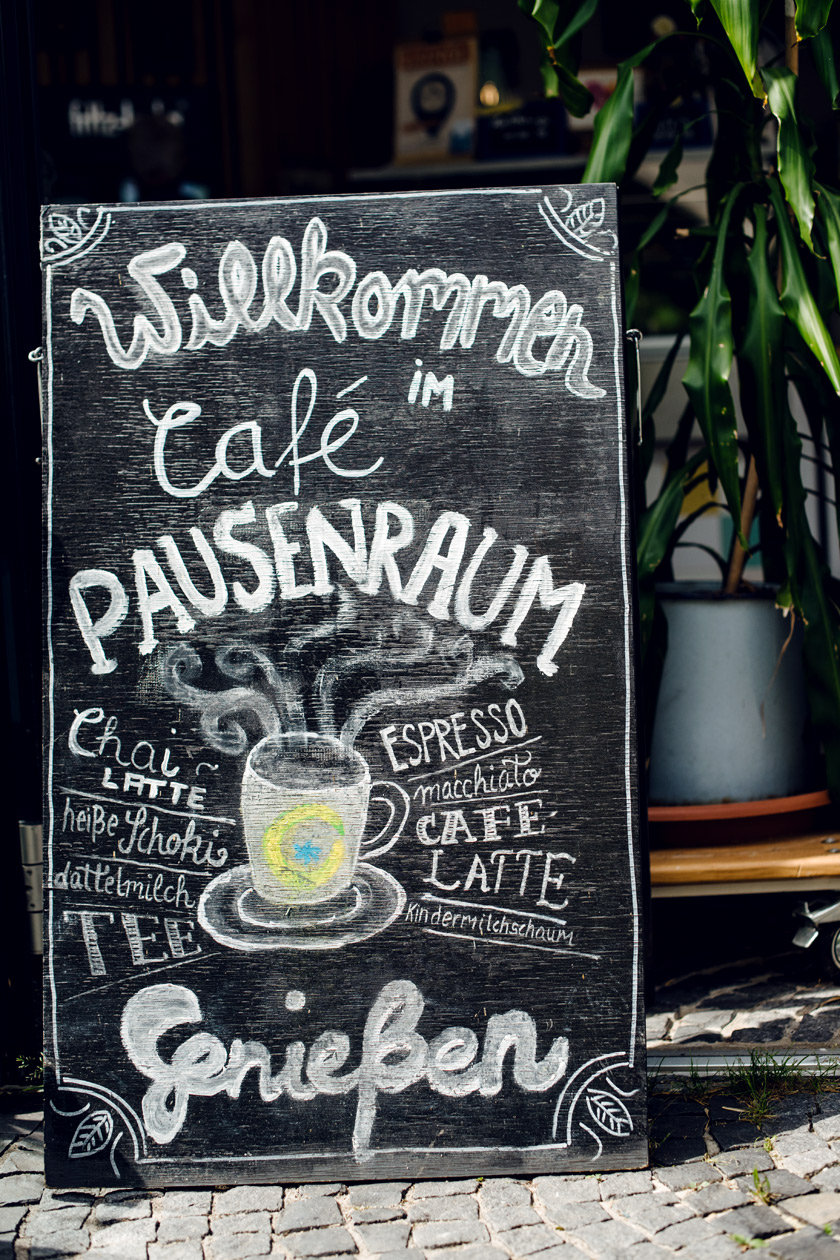 Willkommen
im
Café
PAUSENRAUM
Chai
LATTE
heiße Schoki
dattelmilch
TEE
ESPRESSO
macchiato
CAFE
LATTE
Kindermilchschaum
Genießen